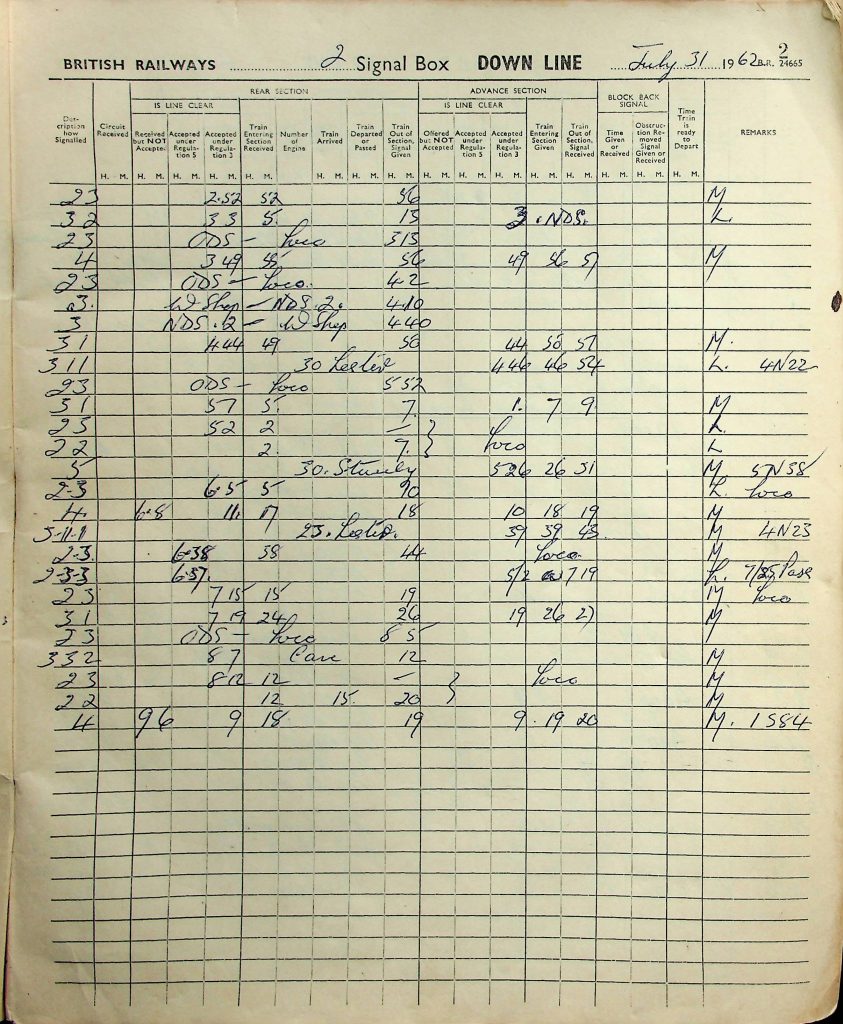 2
BRITISH RAILWAYS 2 Signal Box DOWN LINE July 31 1962 B.R. 24665
REAR SECTION ADVANCE SECTION BLOCK BACK SIGNAL
IS LINE CLEAR IS LINE CLEAR
Description how Signalled Circuit Received Received but NOT Accepted Accepted under Regulation 5 Accepted under Regulation 3 Train Entering Section Received Number of Engine Train Arrived Train Departed or Passed Train Out of Section, Signal Given Offered but NOT Accepted Accepted under Regulation 5 Accepted under Regulation 3 Train Entering Section Given Train Out of Section, Signal Received Time Given or Received Obstruction Removed Signal Given or Received Time Train is ready to Depart REMARKS
H. M. H. M. H. M. H. M. H. M. H. M. H. M. H. M. H. M. H. M. H. M. H. M. H. M. H. M. H. M. H. M.
23 2.52 52 56 M
32 33 5. 15 3. NDS. L.
23 ODS - Loco 313
4 349 55 56 49 56 57 M
23 ODS - Loco. 42
3. W Shop - NDS.2. 410
3 NDS.12 - W Shop 440
31 444 49 50 44 50 51 M.
311 30 446 46 54 L. 4N22
23 ODS - Loco 552
31 57 5. 7. 1. 7 9. M
23 52 2 - } L.
22 2. 9. } Loco L
5 30. 526 26 31 M 5N38
2-3 6.5 5 10 L. Loco
4. 6.8 11. 17 18 10 18 19 M
3-1-1 23. 39 39 43 M 4N23
2-3. 6.38 38 44 Loco. M
2-3-3 6.57. 719 L. Pass
23 715 15 19 M Loco
31 719 24 26 19 26 27 M
23 ODS - Loco 85 M
332 87 Cane 12 M
23 812 12 - } Loco M
22 12 15. 20 } M
4 96 9 18 19 9. 19 20 M. 1S84